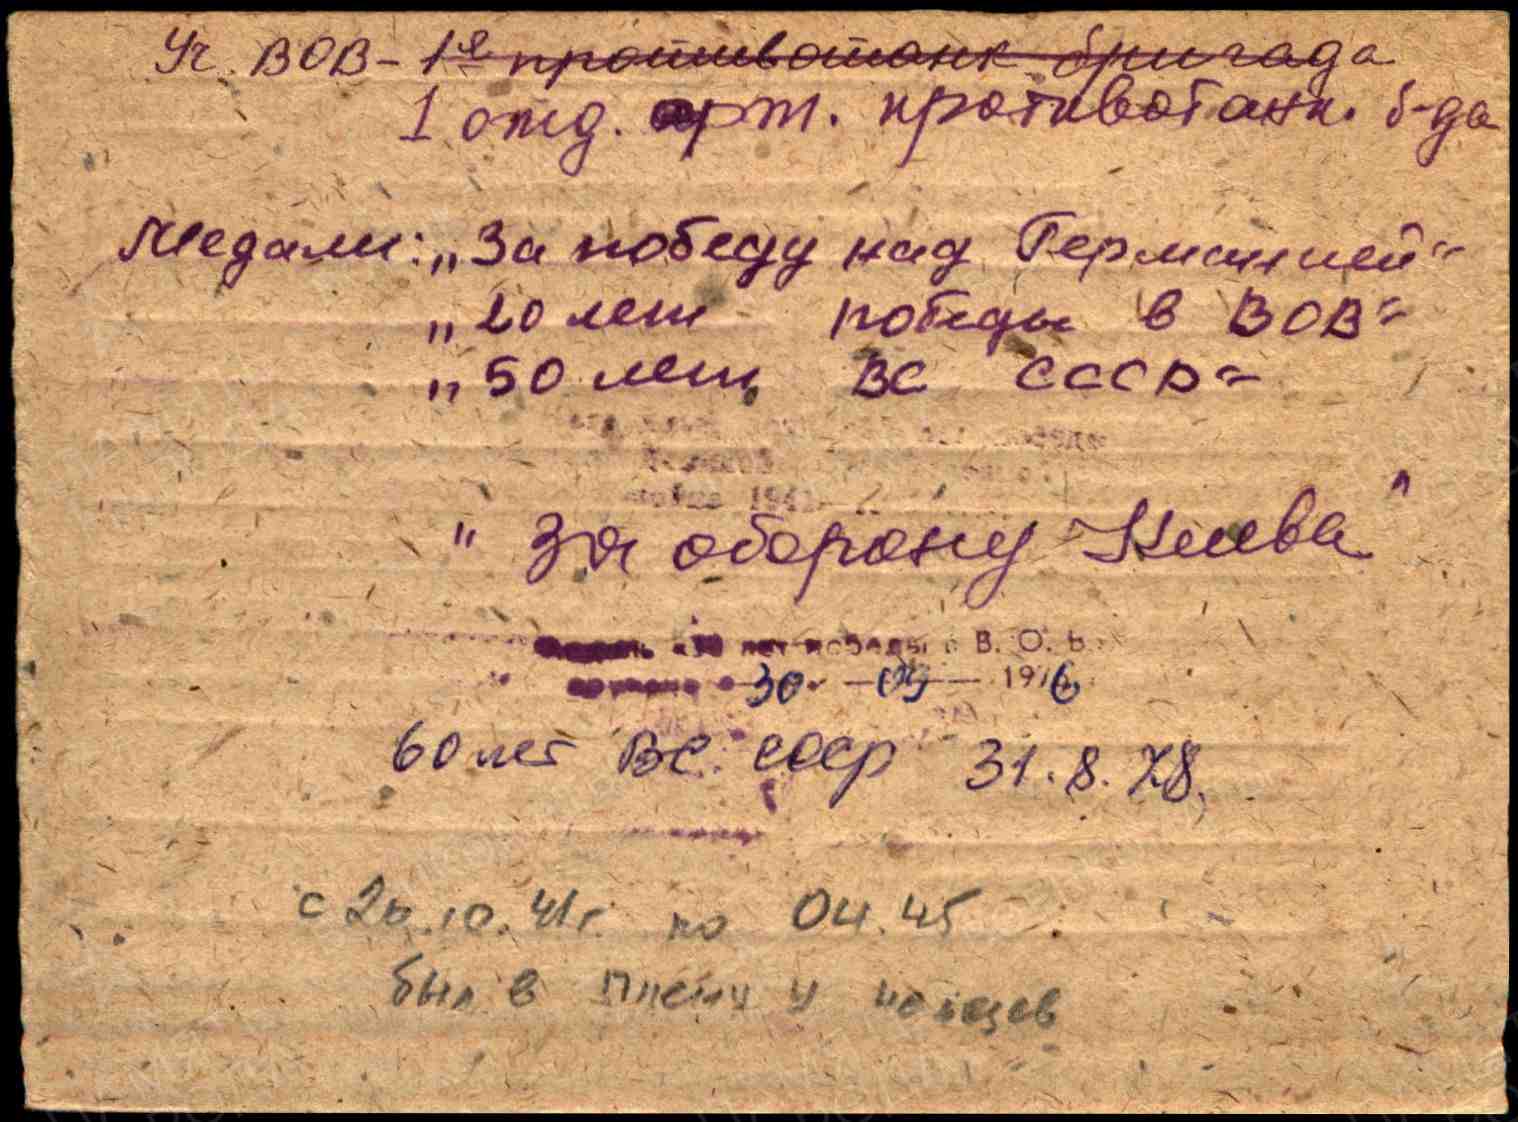 Уч. ВОВ - 1я противотанк бригада
1 отд. арт. противотанк. б-да
Медали: „За победу над Германией"
„20 лет победы в ВОВ"
„50 лет ВС СССР"
войне 1941
"За оборону Киева"
Медаль «30 лет победы в В. О. В.
30 09 1976
60 лет ВС СССР 31.8.78.
с 20.10.41г. по 04.45
был в плену у немцев